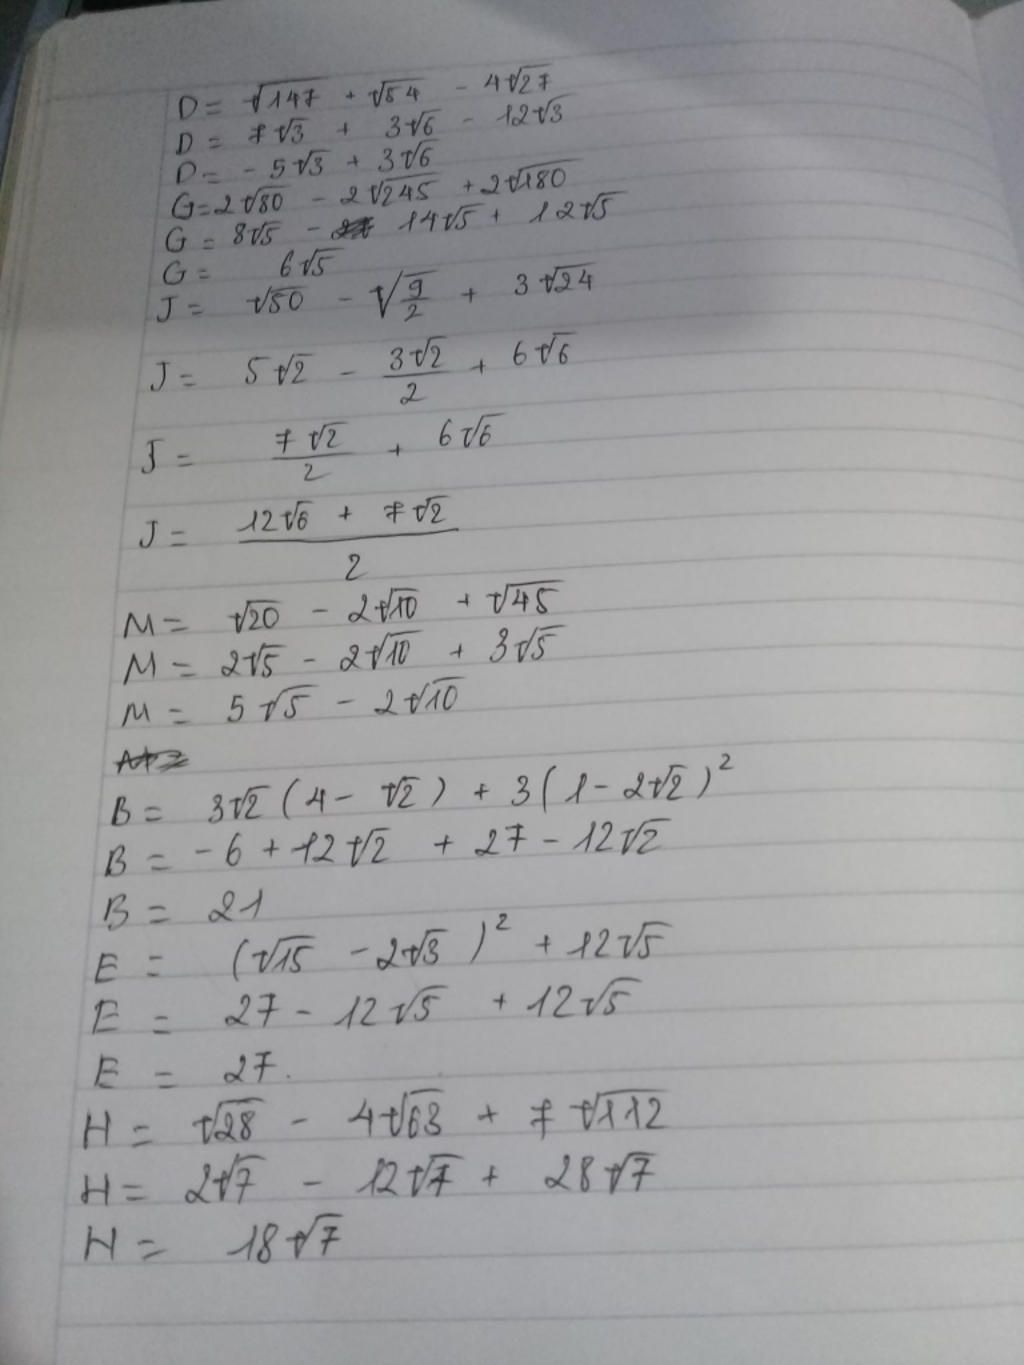 D = √147 + √54 - 4√27
D = 7√3 + 3√6 - 12√3
D = - 5√3 + 3√6
G = 2√80 - 2√245 + 2√180
G = 8√5 - 14√5 + 12√5
G = 6√5
J = √50 - √(9/2) + 3√24
J = 5√2 - 3√2/2 + 6√6
J = 7√2/2 + 6√6
J = (12√6 + 7√2)/2
M = √20 - 2√10 + √45
M = 2√5 - 2√10 + 3√5
M = 5√5 - 2√10
B = 3√2 (4 - √2) + 3(1 - 2√2)²
B = -6 + 12√2 + 27 - 12√2
B = 21
E = (√15 - 2√3)² + 12√5
E = 27 - 12√5 + 12√5
E = 27.
H = √28 - 4√63 + 7√112
H = 2√7 - 12√7 + 28√7
H = 18√7